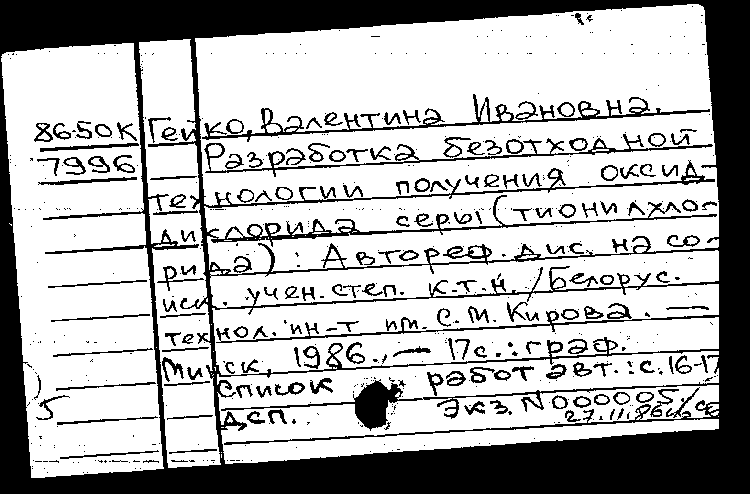 86-50К Гейко, Валентина Ивановна.
7996 Разработка безотходной
технологии получения оксид-
дихлорида серы (тионилхло-
рида) : Автореф. дис. на со-
иск. учен. степ. к.т.н. / Белорус.
технол. ин-т им. С. М. Кирова. —
Минск, 1986., — 17 с. : граф.
Список работ авт. : с. 16-17
ДСП. Экз. N 000005.
5 27.11.86